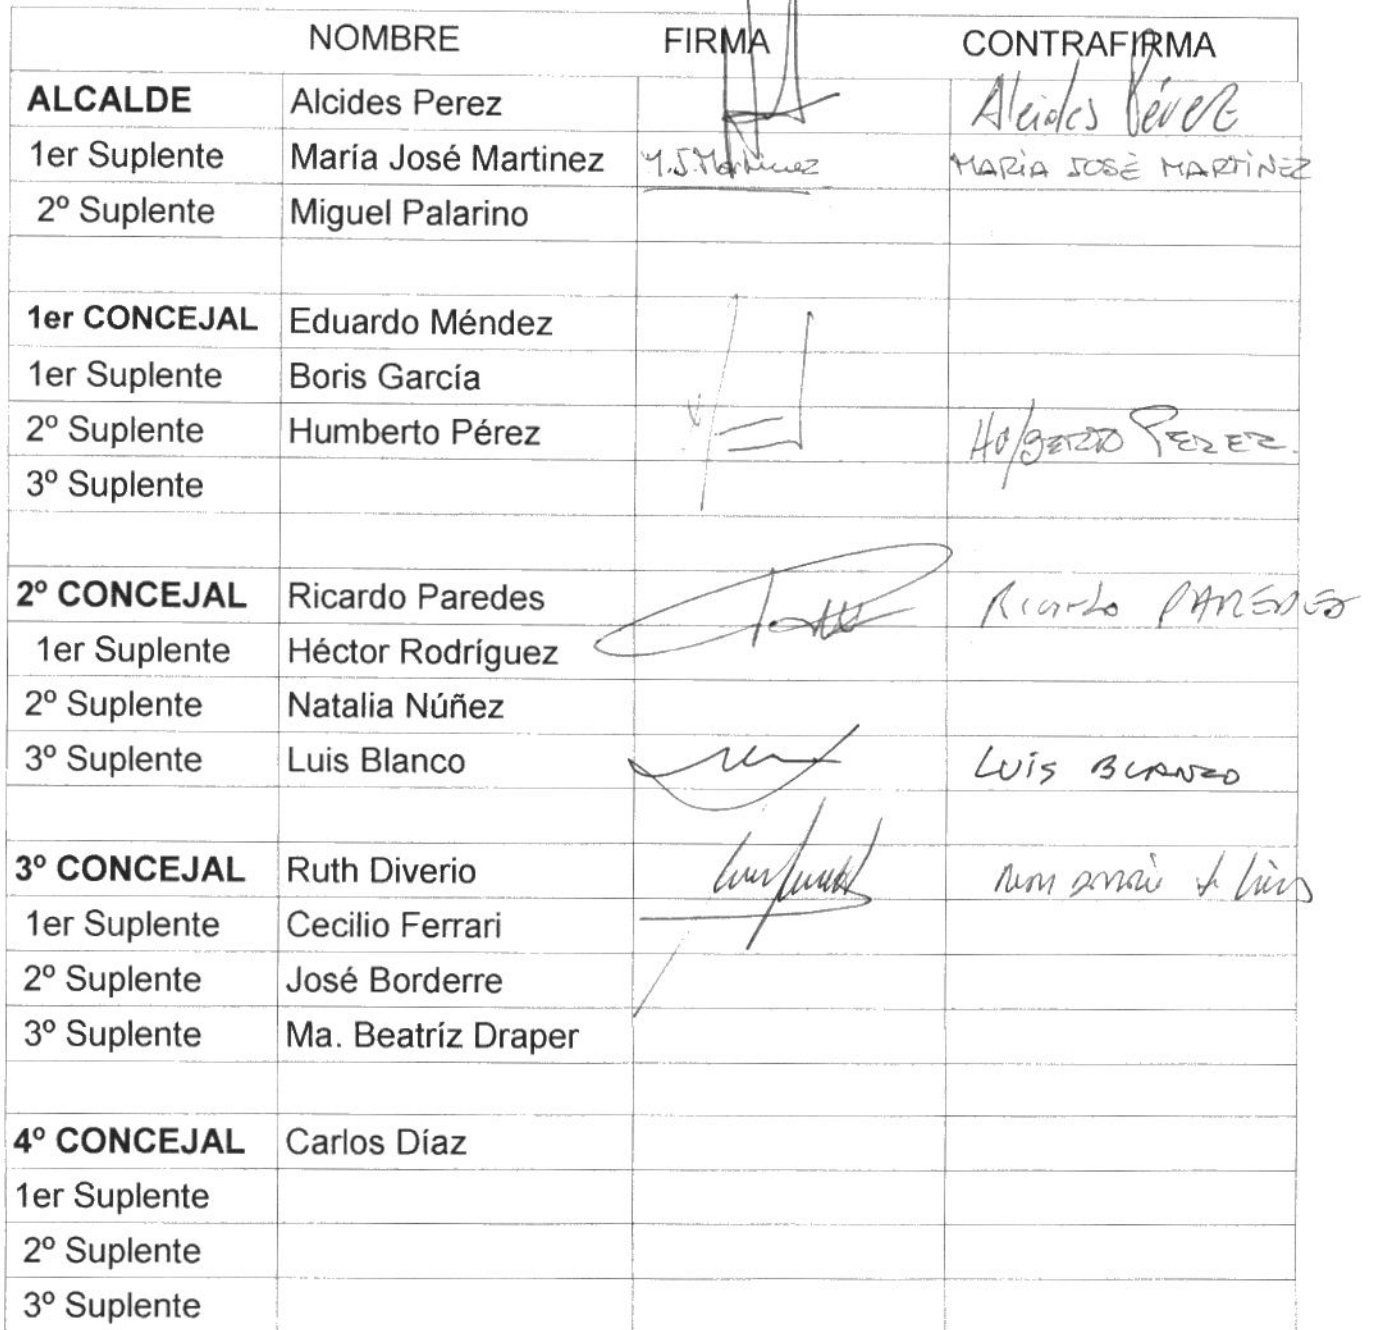 NOMBRE FIRMA CONTRAFIRMA
ALCALDE Alcides Perez Alcides Pérez
1er Suplente María José Martinez M.J.Martinez MARÍA JOSÉ MARTÍNEZ
2º Suplente Miguel Palarino
1er CONCEJAL Eduardo Méndez
1er Suplente Boris García
2º Suplente Humberto Pérez PEREZ.
3º Suplente
2º CONCEJAL Ricardo Paredes Ricardo PAREDES
1er Suplente Héctor Rodríguez
2º Suplente Natalia Núñez
3º Suplente Luis Blanco LUIS BLANCO
3º CONCEJAL Ruth Diverio
1er Suplente Cecilio Ferrari
2º Suplente José Borderre
3º Suplente Ma. Beatríz Draper
4º CONCEJAL Carlos Díaz
1er Suplente
2º Suplente
3º Suplente